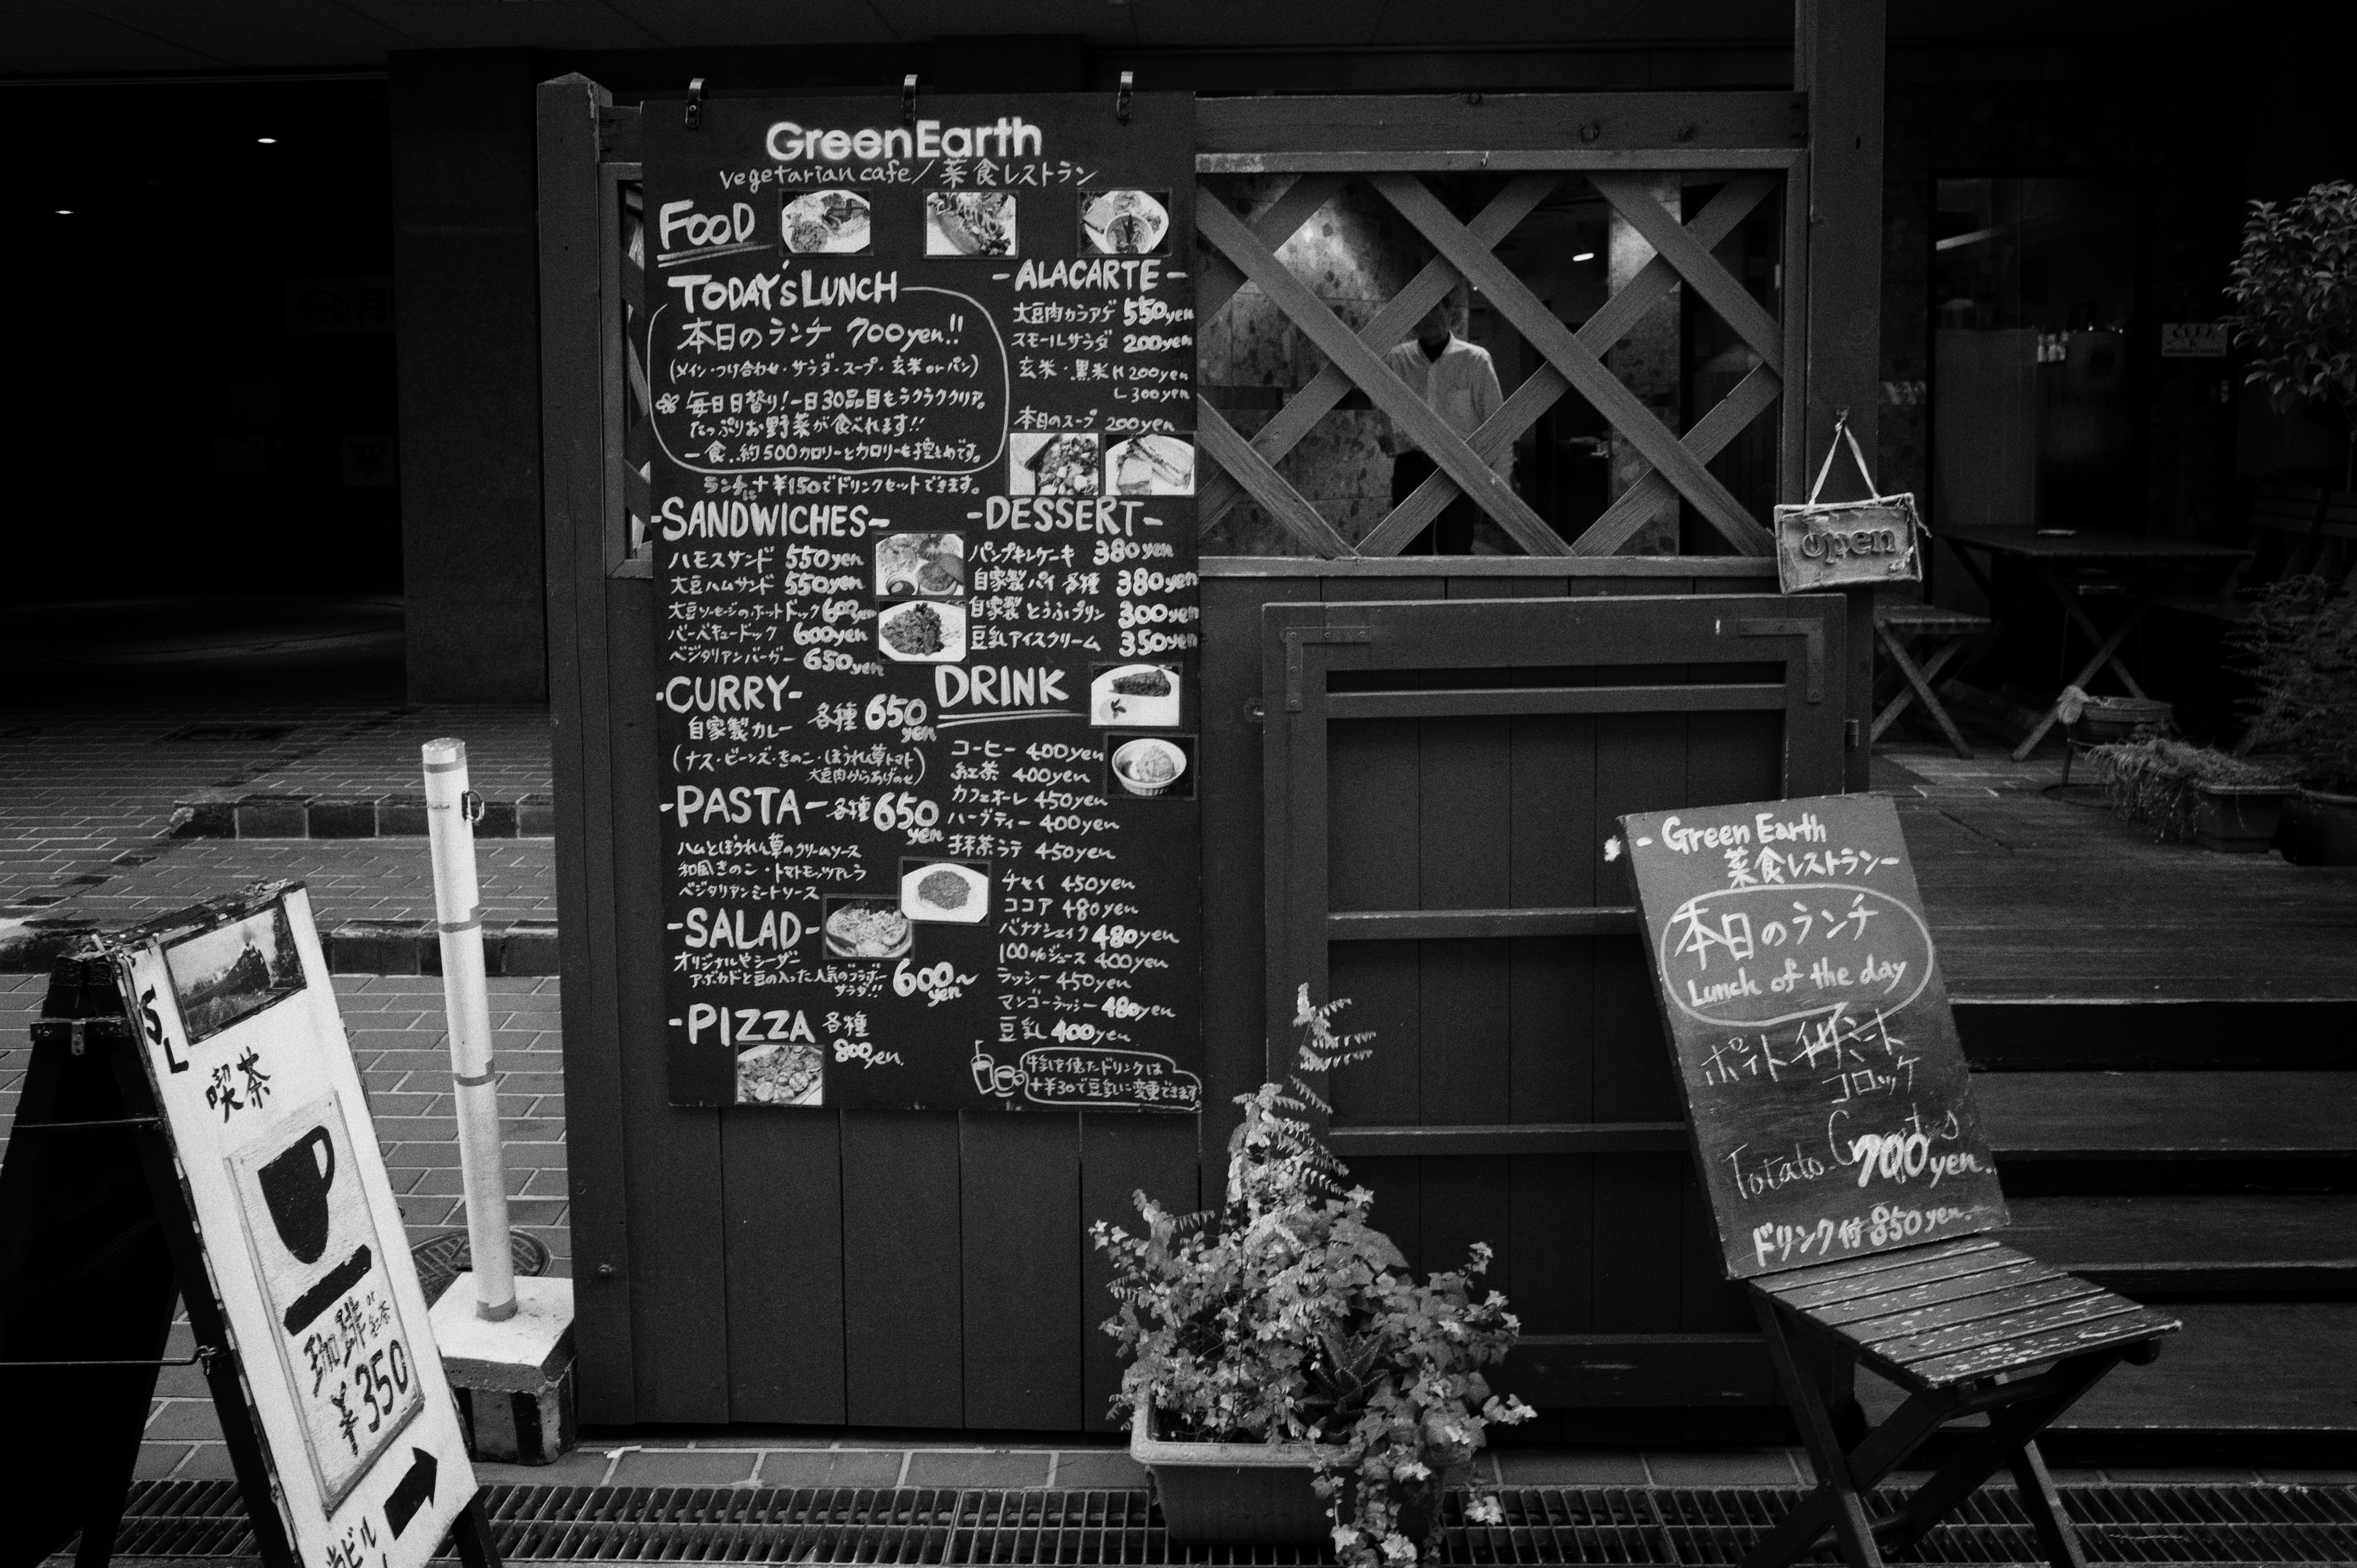 GreenEarth
vegetarian cafe/菜食レストラン
FOOD
TODAY'S LUNCH
本日のランチ 700yen!!
(メイン・つけ合わせ・サラダ・スープ・玄米 or パン)
毎日日替り!一日30品目もラクラククリア。
たっぷりお野菜が食べれます!!
一食、約500カロリーとカロリーも控えめです。
ランチに+¥150でドリンクセットできます。
-SANDWICHES-
ハモスサンド 550yen
大豆ハムサンド 550yen
大豆ソーセージのホットドック 600yen
バーベキュードック 600yen
ベジタリアンバーガー 650yen
-CURRY-
自家製カレー 各種 650yen
(ナス・ビーンズ・きのこ・ほうれん草トマト
大豆肉からあげのせ)
-PASTA- 各種 650yen
ハムとほうれん草のクリームソース
和風きのこ・トマトモッツァレラ
ベジタリアンミートソース
-SALAD-
オリジナルやシーザー
アボカドと豆の入った人気の
サラダ!! 600~yen
-PIZZA 各種
800yen.
-ALACARTE-
大豆肉カラアゲ 550yen
スモールサラダ 200yen
玄米・黒米 M 200yen
L 300yen
本日のスープ 200yen
-DESSERT-
パンプキンケーキ 380yen
自家製パイ 各種 380yen
自家製とうふプリン 300yen
豆乳アイスクリーム 350yen
DRINK
コーヒー 400yen
紅茶 400yen
カフェオーレ 450yen
ハーブティー 400yen
抹茶ラテ 450yen
チャイ 450yen
ココア 480yen
バナナシェイク 480yen
100%ジュース 400yen
ラッシー 450yen
マンゴーラッシー 480yen
豆乳 400yen
牛乳を使たドリンクは
+¥30で豆乳に変更できます
open
-Green Earth
菜食レストラン-
本日のランチ
Lunch of the day
コロッケ
700yen.
ドリンク付 850yen.
SL
喫茶
珈琲 or 紅茶
¥350
ビル